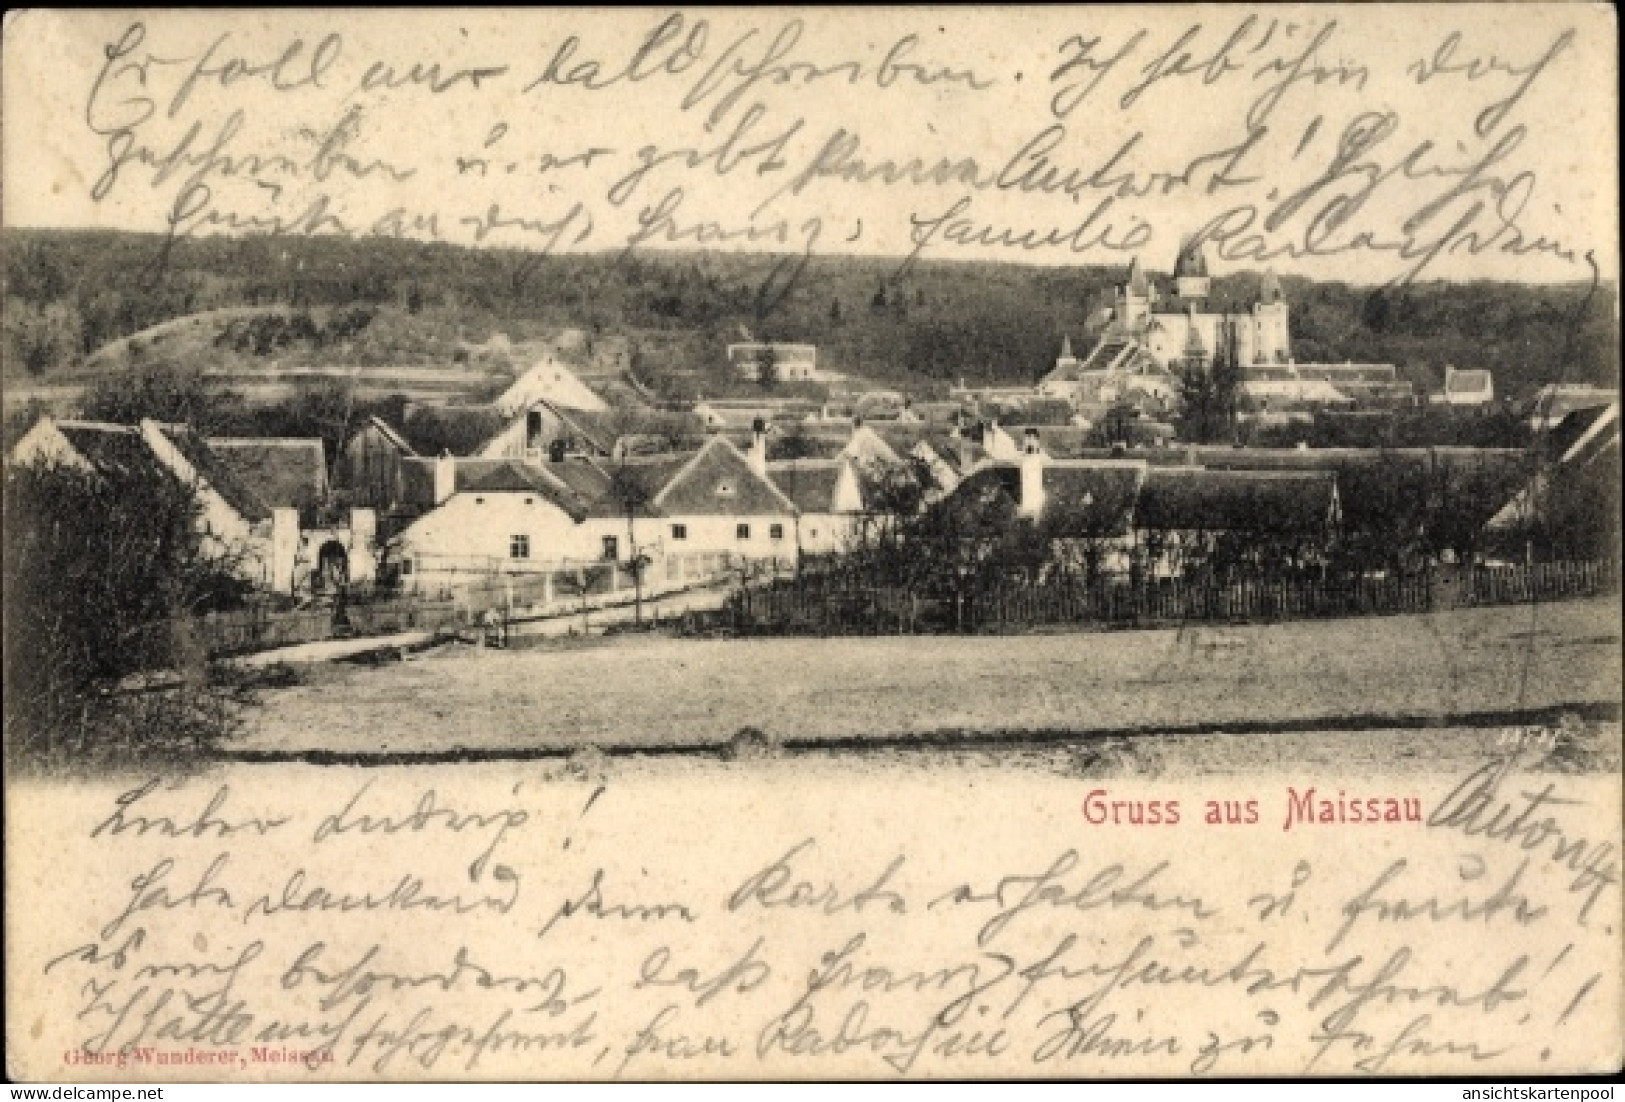 Er soll nur bald schreiben. Ich hab' ihm doch
geschrieben u. er gibt keine Antwort! Herzliche
Grüße an dich, Franz, Familie Radoch
Gruss aus Maissau
Anton
Lieber Ludwig!
habe dankend deine Karte erhalten u. freute
es mich besonders, daß Franz sich unterschrieb!
Ich hätte mich sehr gefreut, Frau Radoch in Wien zu sehen!
Georg Wunderer, Meissau
ansichtskartenpool